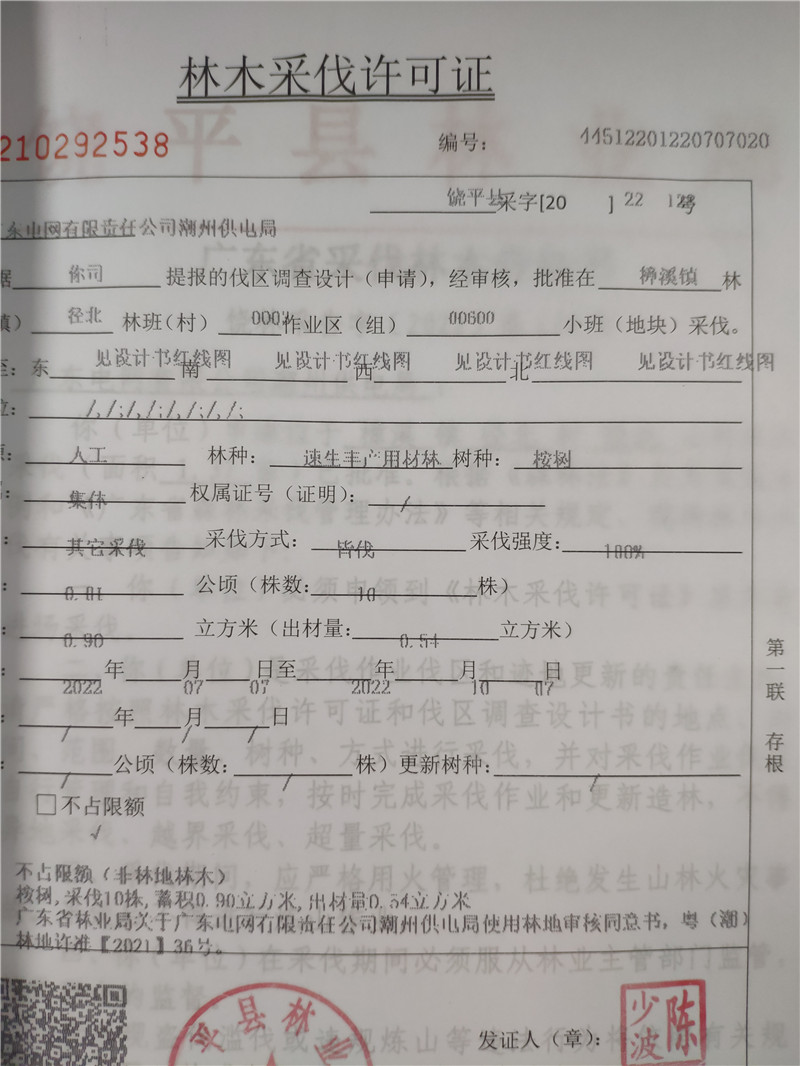 林木采伐许可证
210292538 编号: 44512201220707020
饶平县采字[20 ] 22 128号
东电网有限责任公司潮州供电局
据 你司 提报的伐区调查设计（申请），经审核，批准在 浮溪镇 林
镇） 径北 林班(村） 0002 作业区（组） 00600 小班（地块）采伐。
至：东 见设计书红线图 南 见设计书红线图 西 见设计书红线图 北 见设计书红线图
位： /,/;/,/;/,/;/,/;
人工 林种： 速生丰产用材林 树种： 桉树
集体 权属证号（证明）： /
： 其它采伐 采伐方式： 皆伐 采伐强度： 100%
： 0.01 公顷（株数： 10 株）
： 0.90 立方米（出材量： 0.54 立方米）
： 2022 年 07 月 07 日至 2022 年 10 月 07 日
： / 年 / 月 / 日
： / 公顷（株数： / 株）更新树种： /
□不占限额
√
不占限额（非林地林木）
桉树,采伐10株,蓄积0.90立方米,出材量0.54立方米
广东省林业局关于广东电网有限责任公司潮州供电局使用林地审核同意书，粤（潮）
林地许准【2021】36号。
平县林业
发证人（章）：
陈少波
第一联 存根